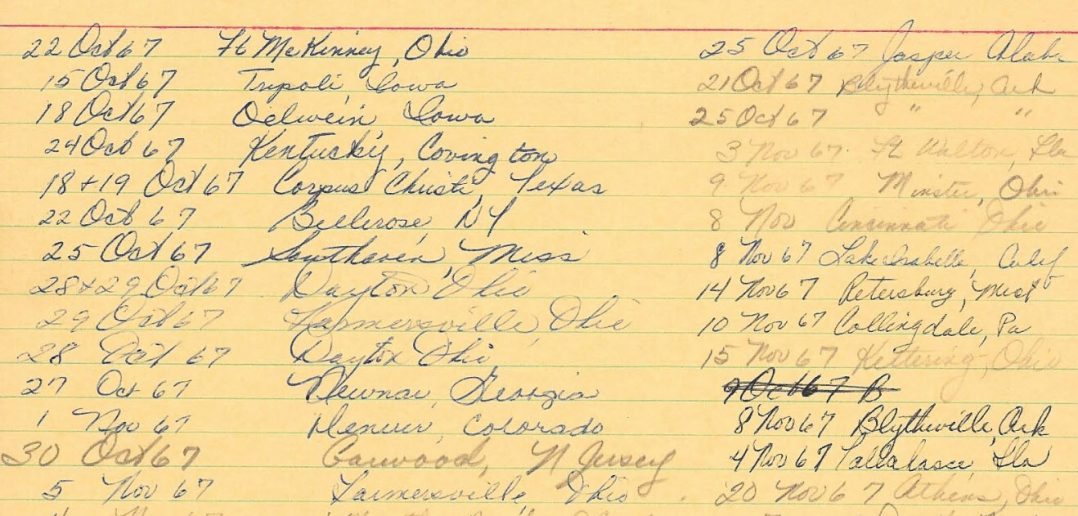 22 Oct 67 Ft McKinney, Ohio
15 Oct 67 Tripoli, Iowa
18 Oct 67 Oelwein Iowa
24 Oct 67 Kentucky, Covington
18 + 19 Oct 67 Corpus Christi, Texas
22 Oct 67 Bellerose, NY
25 Oct 67 Southaven, Miss
28 + 29 Oct 67 Dayton Ohio
29 Oct 67 Farmersville, Ohio
28 Oct 67 Dayton Ohio
27 Oct 67 Newnan, Georgia
1 Nov 67 Denver, Colorado
30 Oct 67 Garwood, N Jersey
5 Nov 67 Farmersville, Ohio
25 Oct 67 Jasper Alab
21 Oct 67 Blytheville, Ark
25 Oct 67 " "
3 Nov 67 Ft Walton, Fla
9 Nov 67 Minster, Ohio
8 Nov Cincinnati Ohio
8 Nov 67 Lake Isabella, Calif
14 Nov 67 Petersburg, Mich
10 Nov 67 Collingdale, Pa
15 Nov 67 Kettering, Ohio
9 Oct 67 B
8 Nov 67 Blytheville, Ark
4 Nov 67 Tallahassee, Fla
20 Nov 67 Athens, Ohio